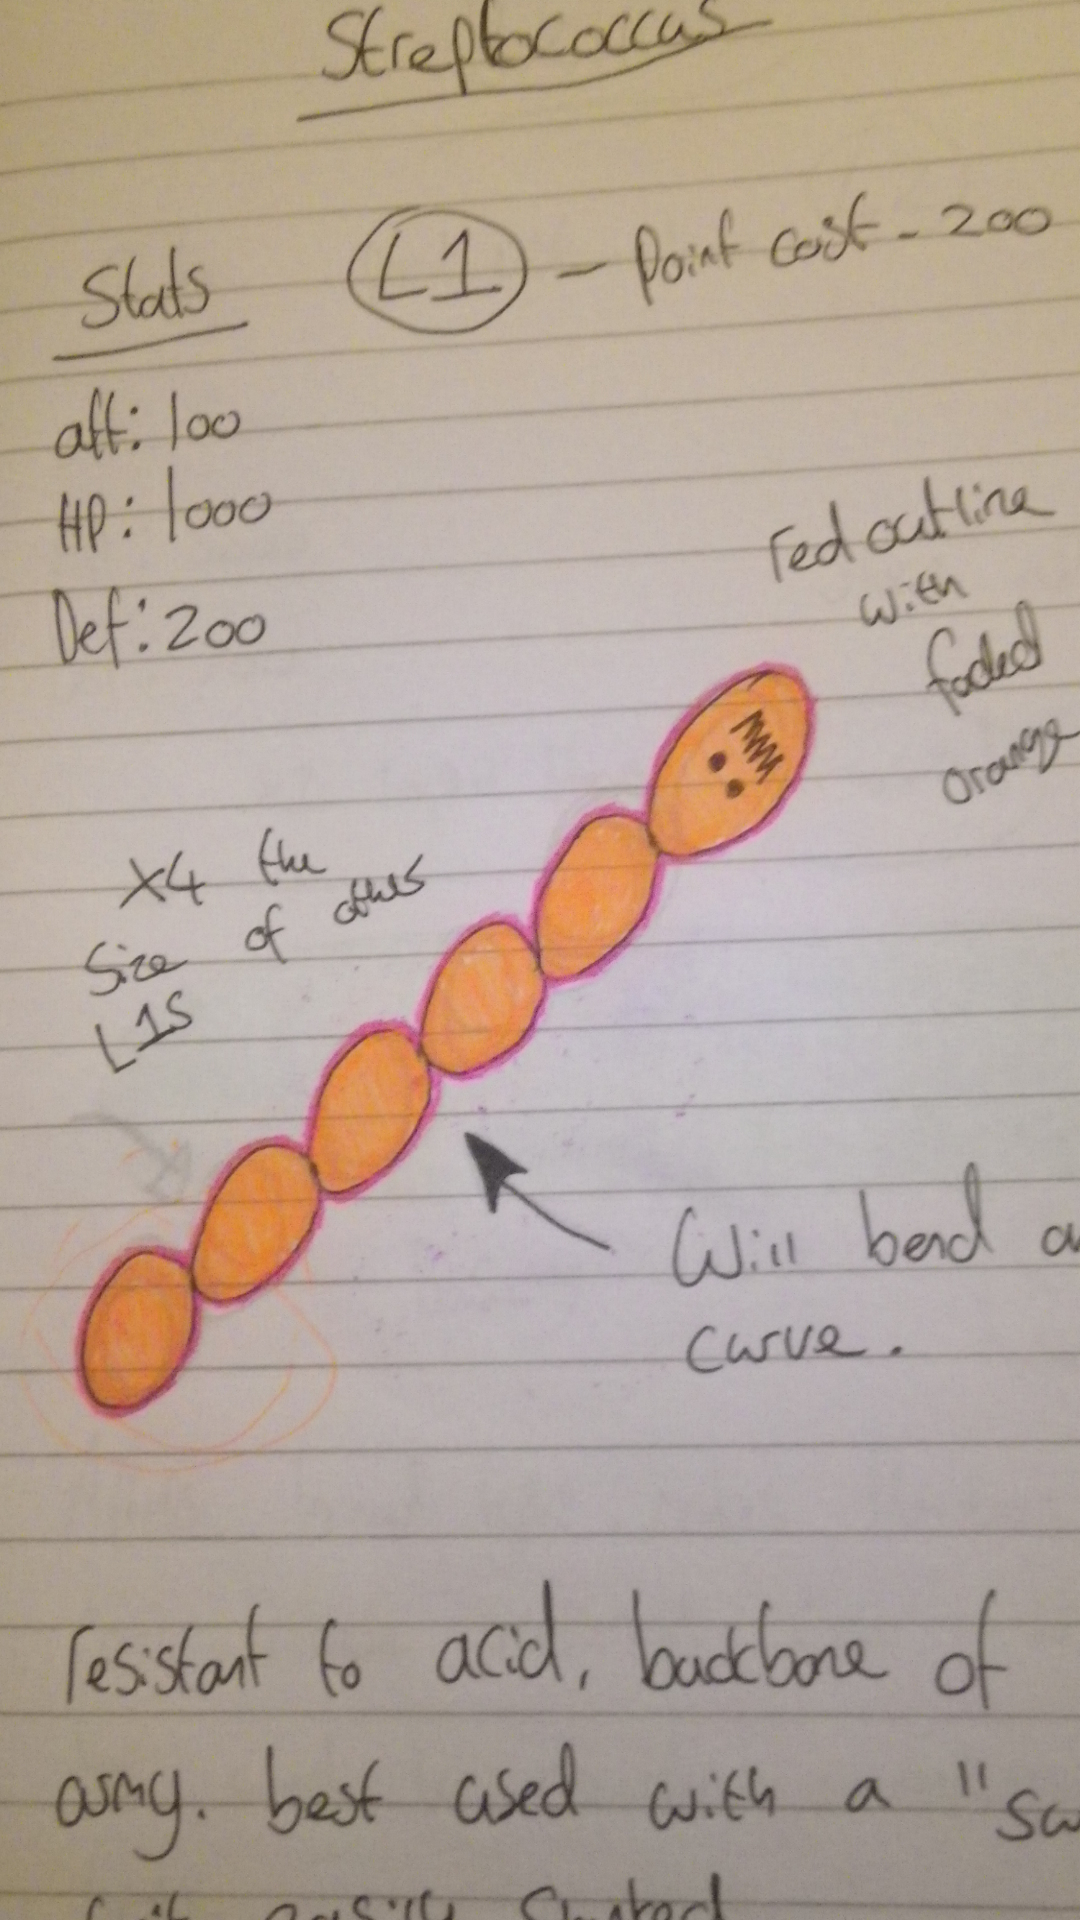 Streptococcus
Stats L1 - Point cost - 200
att: 100
HP: 1000
Def: 200
red outline
with
faded
orange
X4 the
size of other
L1s
Will bend
curve.
resistant to acid, backbone of
army. best used with a "
easily